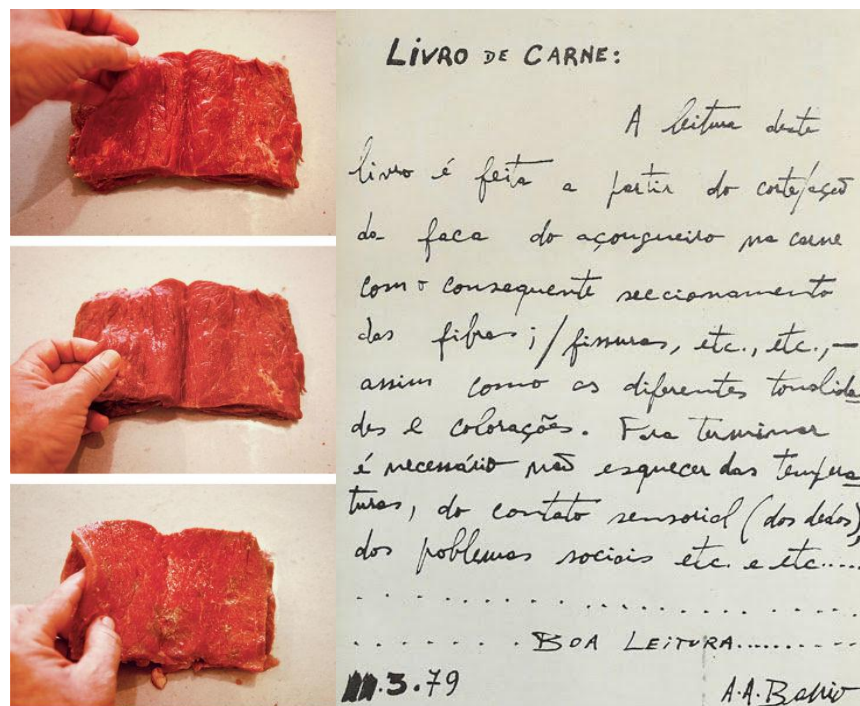 LIVRO DE CARNE:
A leitura deste
livro é feita a partir do corte/ação
da faca do açougueiro na carne
com o consequente seccionamento
das fibras; / fissuras, etc., etc., —
assim como as diferentes tonalida
des e colorações. Para terminar
é necessário não esquecer das tempera
turas, do contato sensorial (dos dedos),
dos problemas sociais etc. e etc.....
. . . . . . . . . . . . . . . . . . . .
. . . . . . . . BOA LEITURA..........
.3.79 A.A.Barrio